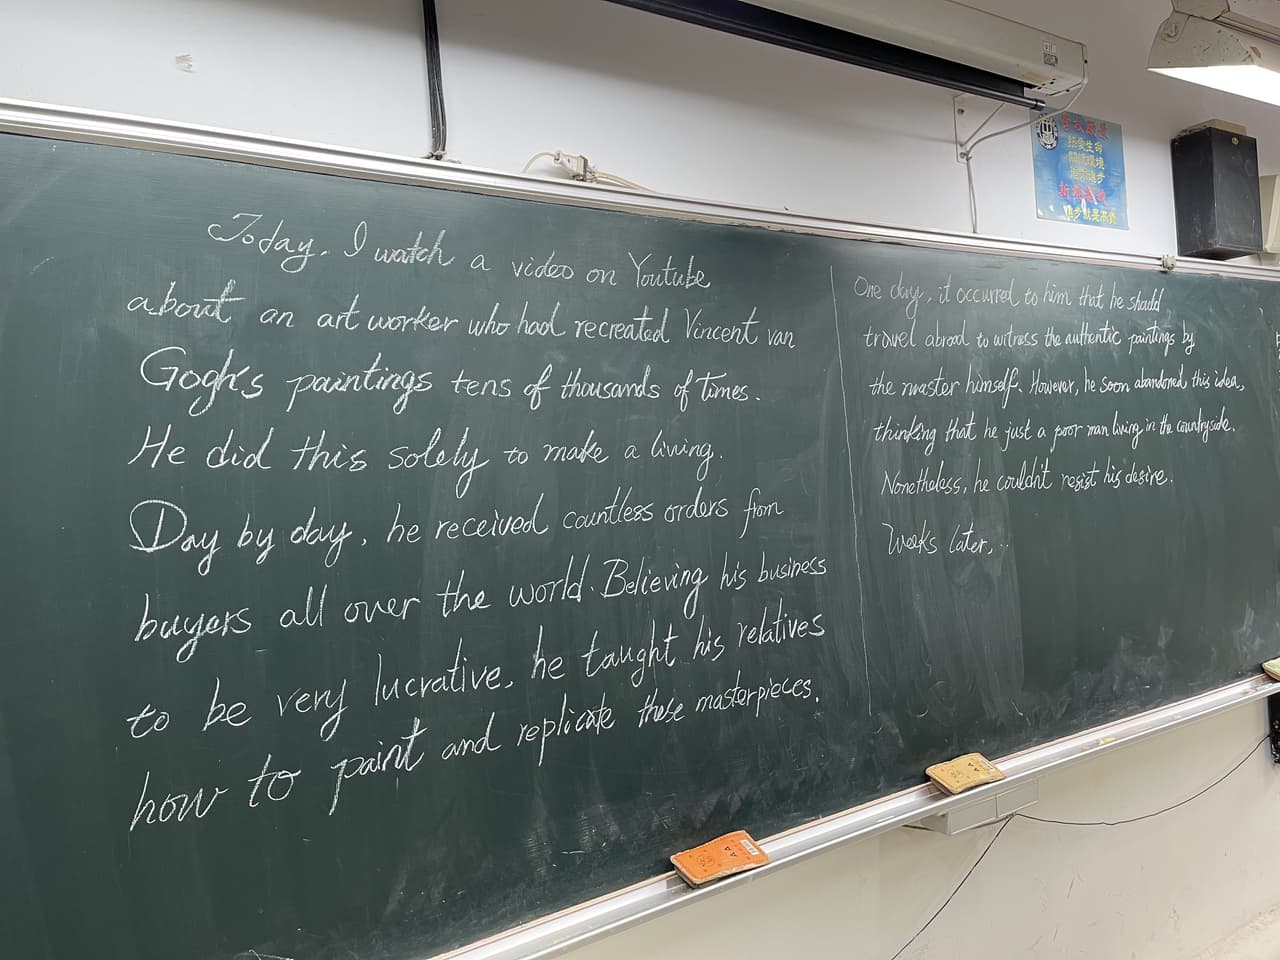 Today, I watch a video on Youtube
about an art worker who had recreated Vincent van
Gogh's paintings tens of thousands of times.
He did this solely to make a living.
Day by day, he received countless orders from
buyers all over the world. Believing his business
to be very lucrative, he taught his relatives
how to paint and replicate these masterpieces.
One day, it occurred to him that he should
travel abroad to witness the authentic paintings by
the master himself. However, he soon abandoned this idea,
thinking that he just a poor man living in the countryside.
Nonetheless, he couldn't resist his desire.
Weeks later, ..
熱愛生命
關懷環境